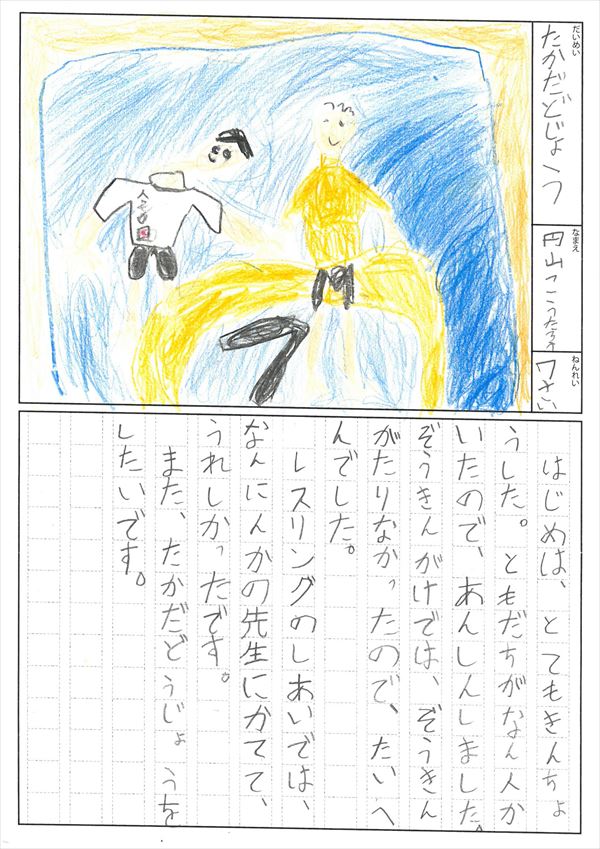 だいめい
たかだどじょう
なまえ
円山こうたろう
ねんれい
7さい
はじめは、とてもきんちょ
うした。ともだちがなん人か
いたので、あんしんしました。
ぞうきんがけでは、ぞうきん
がたりなかったので、たいへ
んでした。
レスリングのしあいでは、
なんにんかの先生にかてて、
うれしかったです。
また、たかだどうじょうを
したいです。